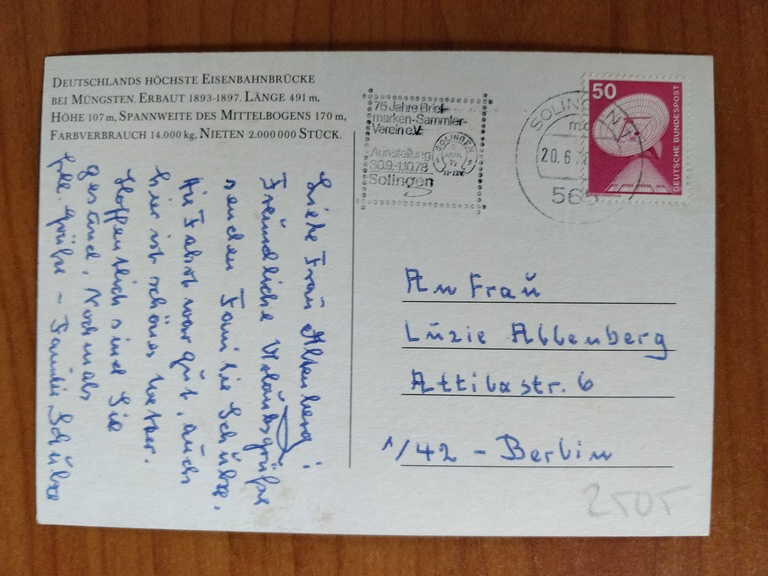 DEUTSCHLANDS HÖCHSTE EISENBAHNBRÜCKE
BEI MÜNGSTEN. ERBAUT 1893-1897. LÄNGE 491 m,
HÖHE 107 m, SPANNWEITE DES MITTELBOGENS 170 m,
FARBVERBRAUCH 14.000 kg, NIETEN 2.000 000 STÜCK.
Liebe Frau Altenberg!
Freundliche Urlaubsgrüße
senden Familie Schübe.
Die Fahrt war gut, auch
hier ist schönes Wetter.
Hoffentlich sind Sie
gesund. Nochmals
Grüße - Familie Schübe
75 Jahre Brief-
marken-Sammler-
Verein e.V.
Ausstellung
30.9.-1.10.78
Solingen
SOLINGEN
SOLINGEN 1
20.6.
565
50
DEUTSCHE BUNDESPOST
An Frau
Luzie Altenberg
Attilastr. 6
1/42 - Berlin
2505